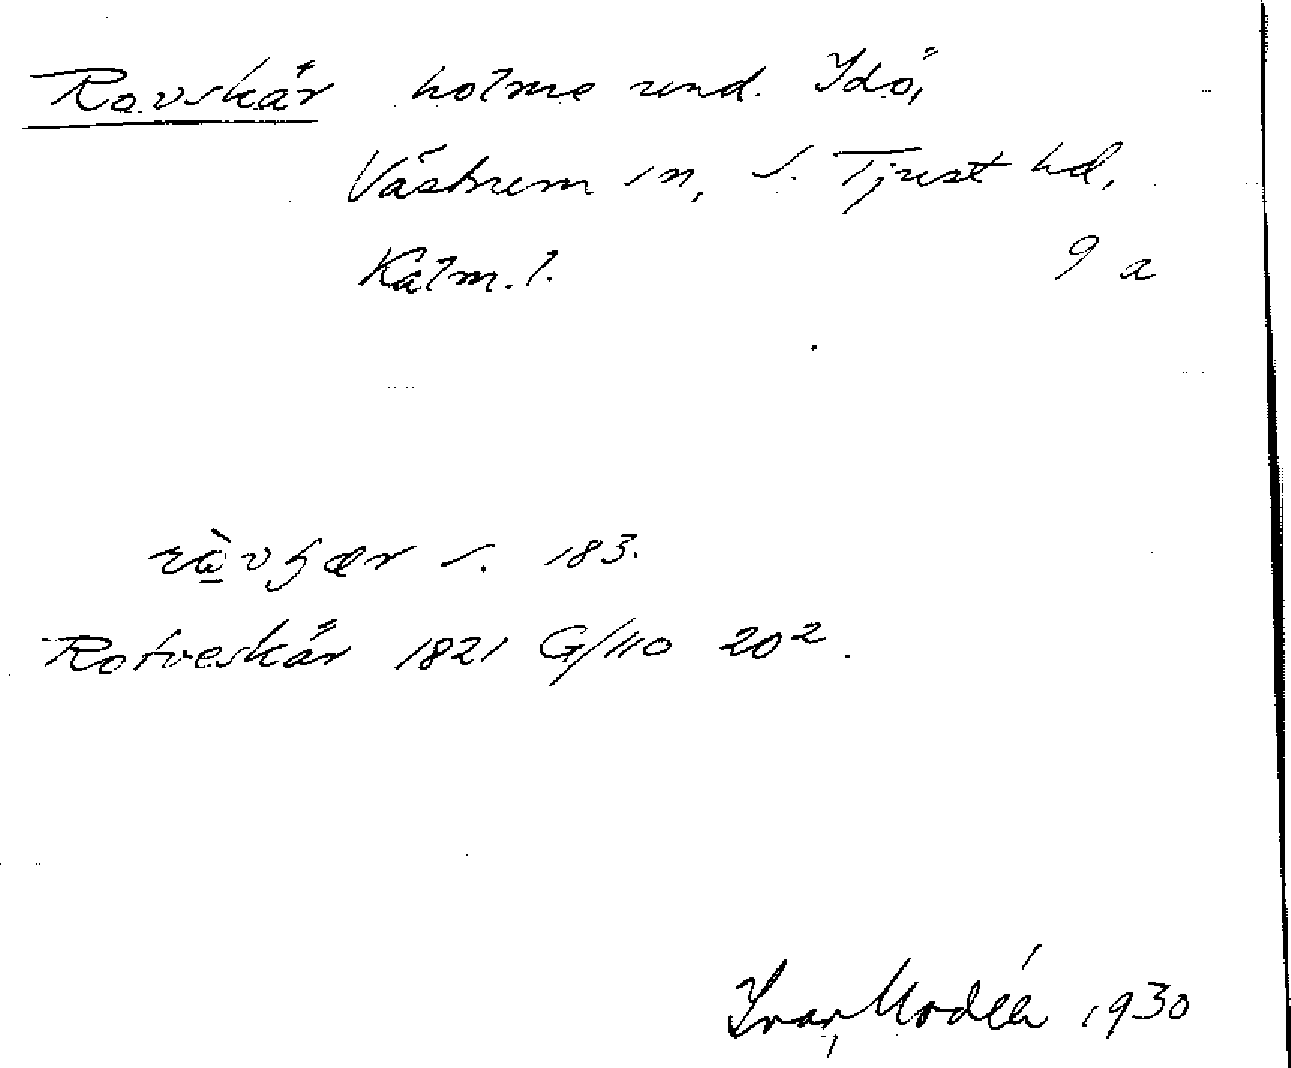 Rovskär holme und. Idö,
Västrum sn, S. Tjust hd,
Kalm. l. 9 a
s. 183.
Rotveskär 1821 G/110 20².
Ivar Modéer 1930